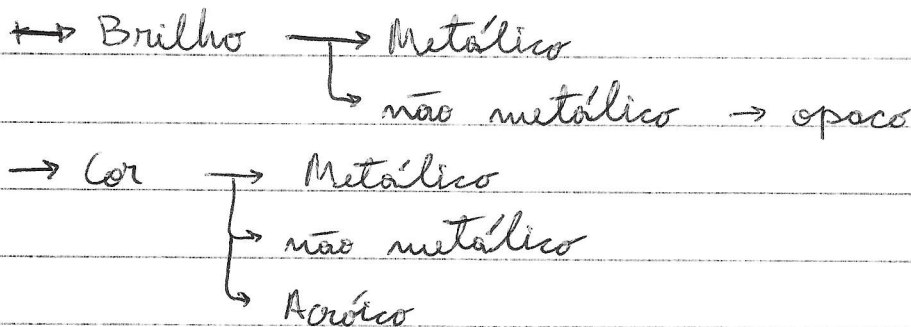 ↔ Brilho → Metálico
↳ não metálico → opaco
→ Cor → Metálico
↳ não metálico
↳ Acróico